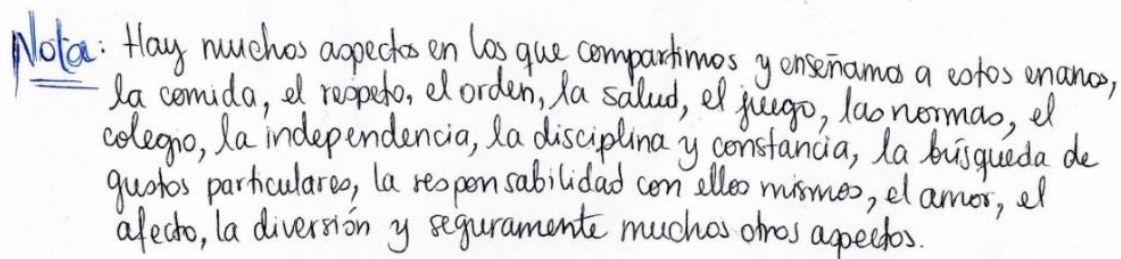 Nota: Hay muchos aspectos en los que compartimos y enseñamos a estos enanos,
la comida, el respeto, el orden, la salud, el juego, las normas, el
colegio, la independencia, la disciplina y constancia, la búsqueda de
gustos particulares, la responsabilidad con ellos mismos, el amor, el
afecto, la diversión y seguramente muchos otros aspectos.